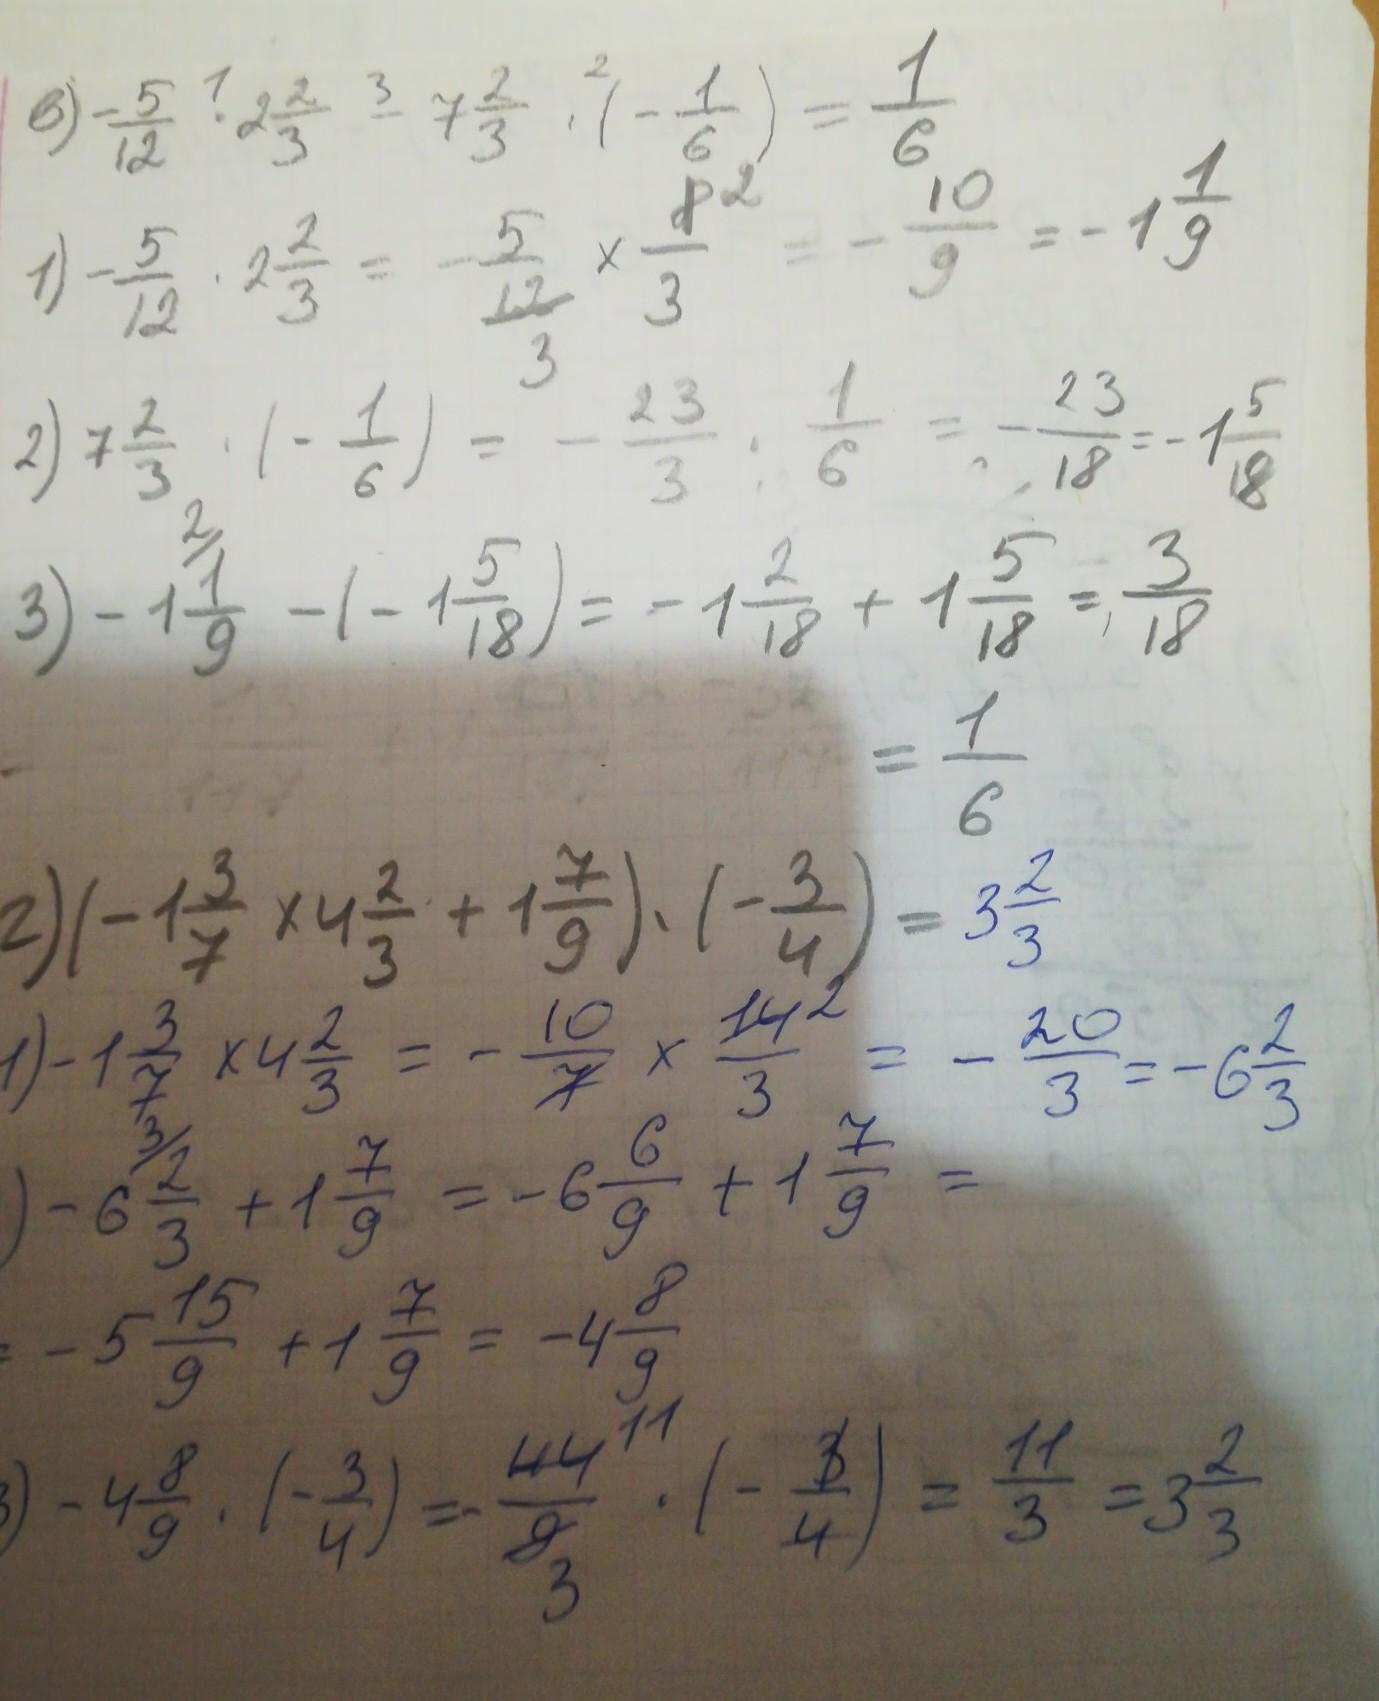 в) -5/12 · 2 2/3 - 7 2/3 · (-1/6) = 1/6
1) -5/12 · 2 2/3 = -5/12 × 8/3 = -10/9 = -1 1/9
2) 7 2/3 · (-1/6) = -23/3 · 1/6 = -23/18 = -1 5/18
3) -1 1/9 - (-1 5/18) = -1 2/18 + 1 5/18 = 3/18
= 1/6
г) (-1 3/7 × 4 2/3 + 1 7/9) · (-3/4) = 3 2/3
1) -1 3/7 × 4 2/3 = -10/7 × 14/3 = -20/3 = -6 2/3
) -6 2/3 + 1 7/9 = -6 6/9 + 1 7/9 =
= -5 15/9 + 1 7/9 = -4 8/9
3) -4 8/9 · (-3/4) = -44/9 · (-3/4) = 11/3 = 3 2/3